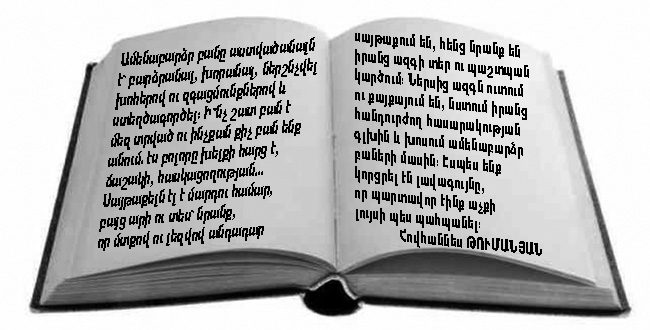 Ամենաբարձր բանը աստվածանալն
է՝ բարձրանալ, խորանալ, ներշնչվել
խոհերով ու զգացմունքներով և
ստեղծագործել: Ի՜նչ շատ բան է
մեզ տրված ու ինչքան քիչ բան ենք
անում. էս բոլորը խելքի հարց է,
ճաշակի, հասկացողության...
Սայթաքելն էլ է մարդու համար,
բայց արի ու տես՝ նրանք,
որ մտքով ու լեզվով անդադար
սայթաքում են, հենց նրանք են
իրանց ազգի տեր ու պաշտպան
կարծում: Ներսից ազգն ուտում
ու քայքայում են, նստում իրանց
հանդուրժող հասարակության
գլխին և խոսում ամենաբարձր
բաների մասին: Էսպես ենք
կորցրել էն լավագույնը,
որ պարտավոր էինք աչքի
լույսի պես պահպանել:
Հովհաննես ԹՈՒՄԱՆՅԱՆ